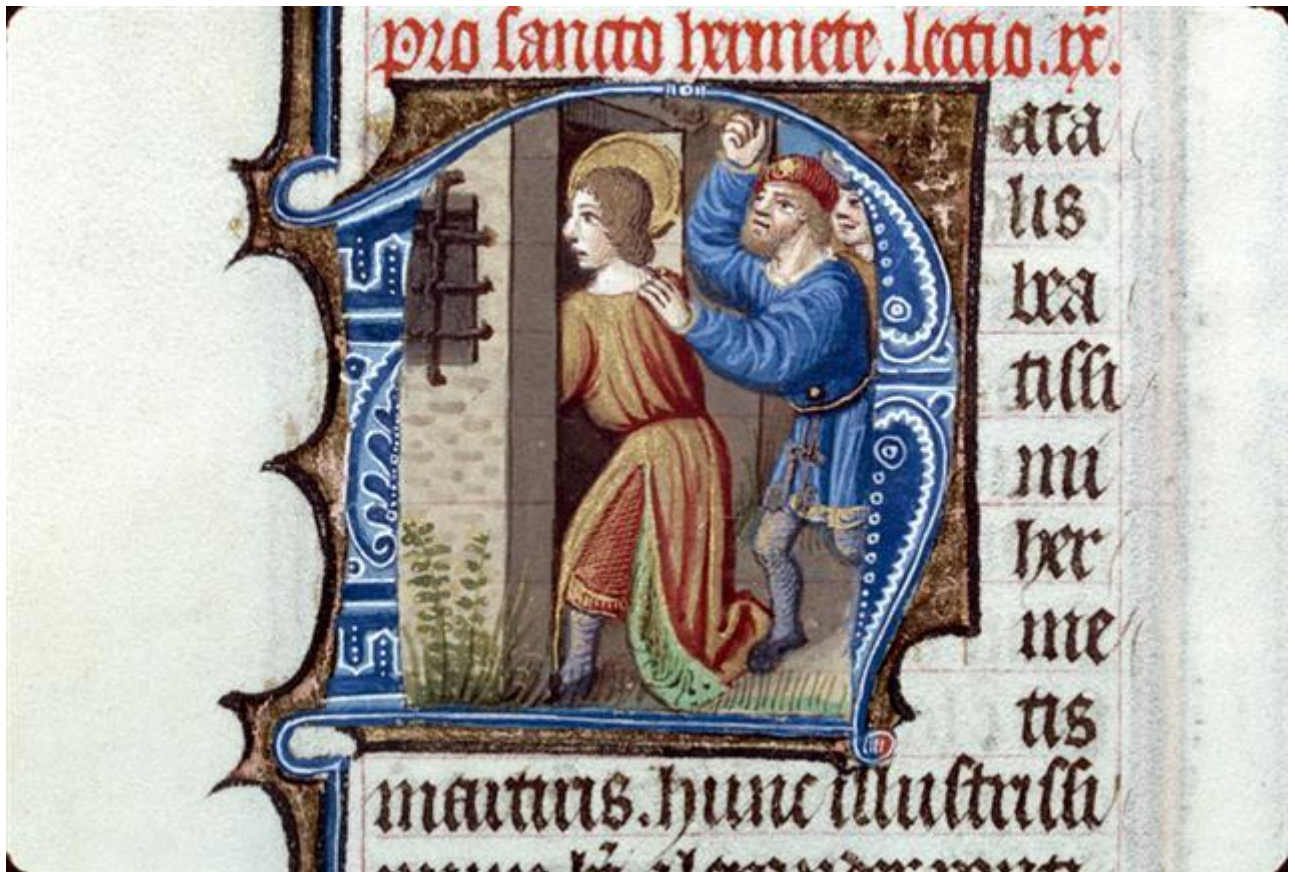 pro sancto hermete. lectio .ix.
Nata
lis
bea
tissi
mi
her
me
tis
martiris. hunc illustrissi
alexander